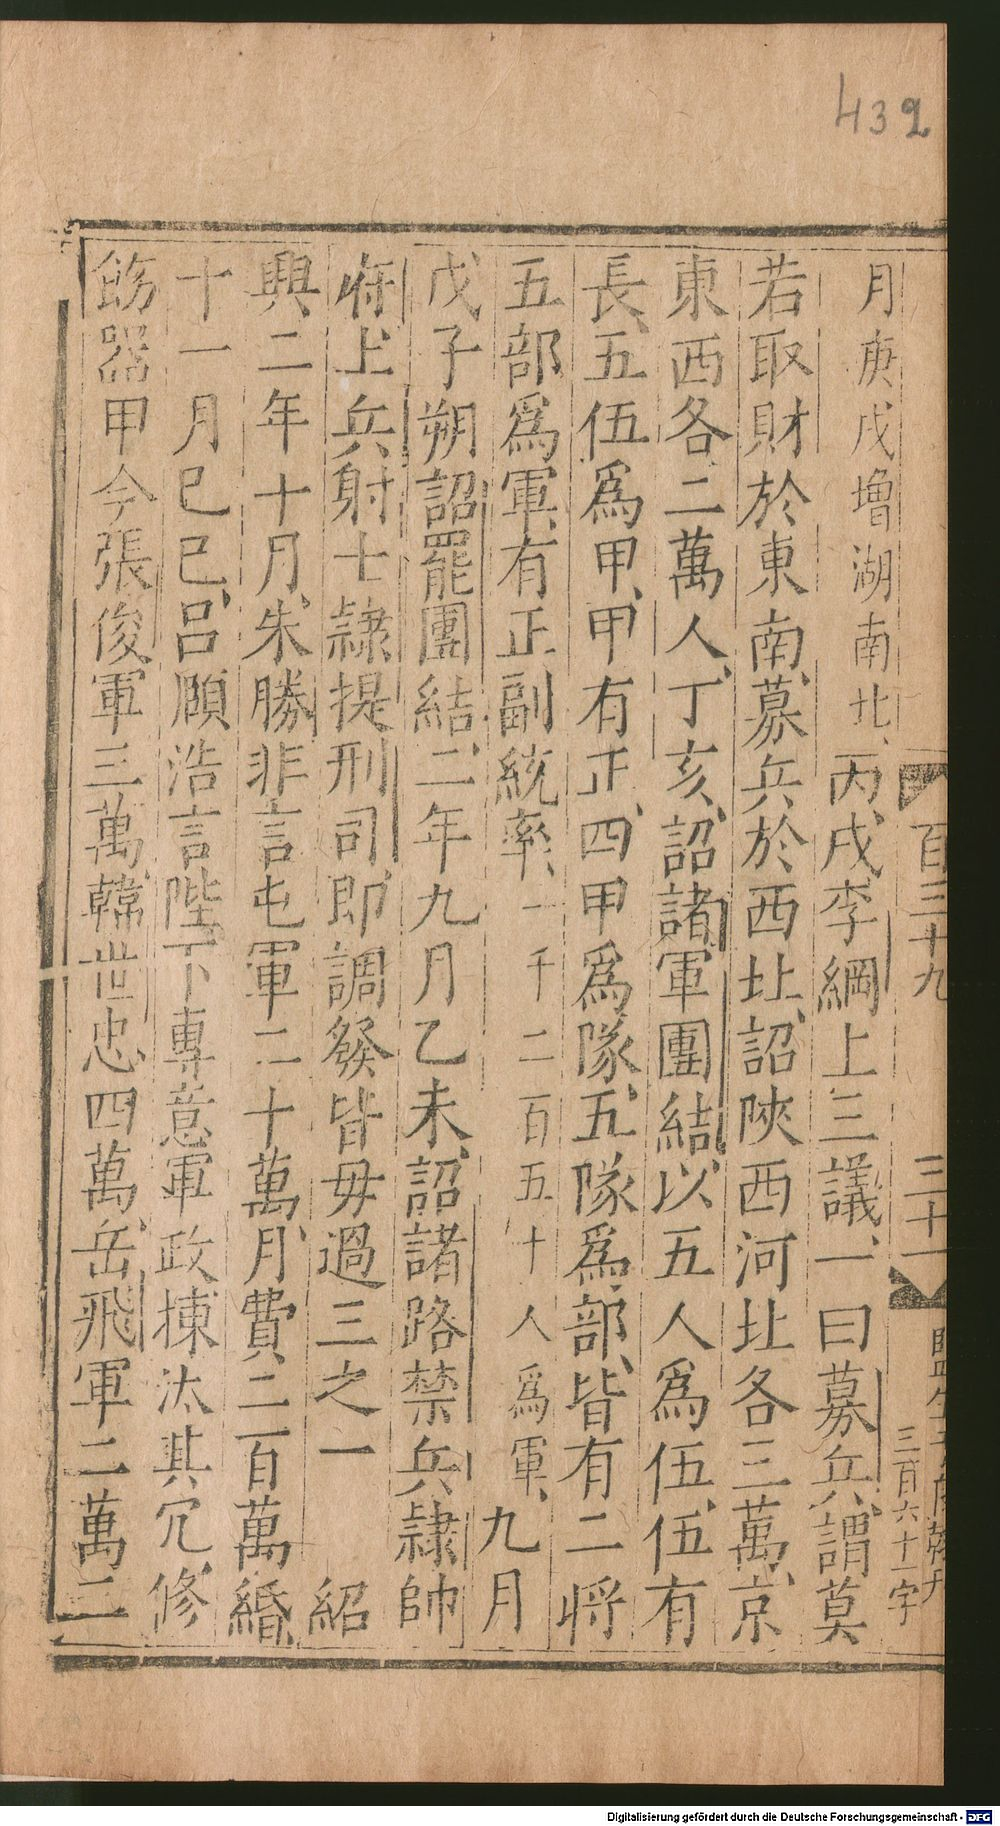 439
百三十九
三十一
三百六十一字
月庚戌增湖南北、丙戌李綱上三議、一曰募兵、謂莫
若取財於東南、募兵於西北、詔陝西河北各三萬、京
東西各二萬人、丁亥、詔諸軍團結、以五人爲伍、伍有
長、五伍爲甲、甲有正、四甲爲隊、五隊爲部、皆有二將
五部爲軍、有正副統率、一千二百五十人爲軍、九月
戊子朔詔罷團結、二年九月乙未、詔諸路禁兵隷帥
府、上兵射士隷提刑司、即調發皆毋過三之一 紹
興二年十月、朱勝非言屯軍二十萬、月費二百萬緡、
十一月己巳、呂頤浩言陛下專意軍政揀汰其冗、修
飭器甲今張俊軍三萬、韓世忠四萬、岳飛軍二萬三
Digitalisierung gefördert durch die Deutsche Forschungsgemeinschaft - DFG